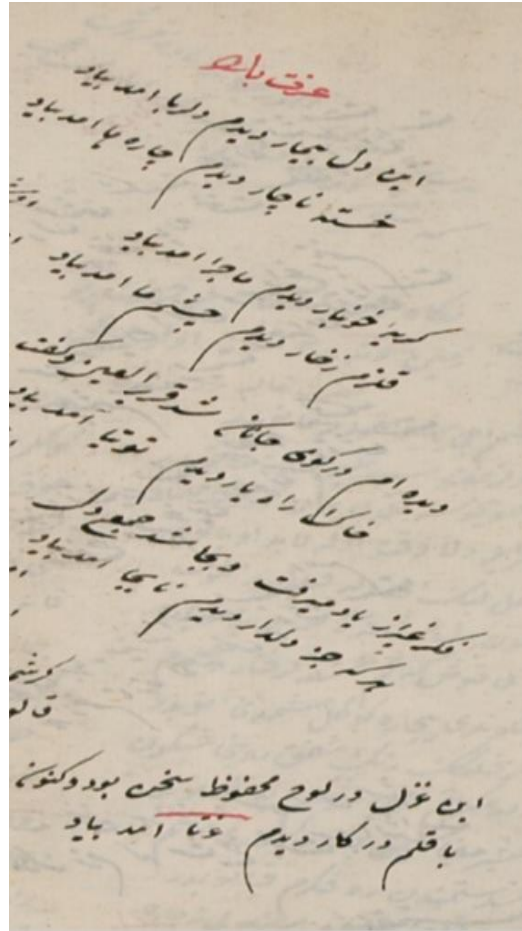 این دل بیمار دیدم دلربا امد بیاد
خسته ناچار دیدم چاره ها امد بیاد
گریه خونبار دیدم ماجرا امد بیاد
قلزم زخار دیدم چشم ما امد بیاد
دیده ام در کوی جانان شد قریر العین و گفت
خاک راه یار دیدم توتیا امد بیاد
فکر غیر از یاد میرفت و بجا شد جمع دل
هر که جز دلدار دیدم نابجا امد بیاد
این غزل در لوح محفوظ سخن بود و کنون
با قلم در کار دیدم عزتا امد بیاد